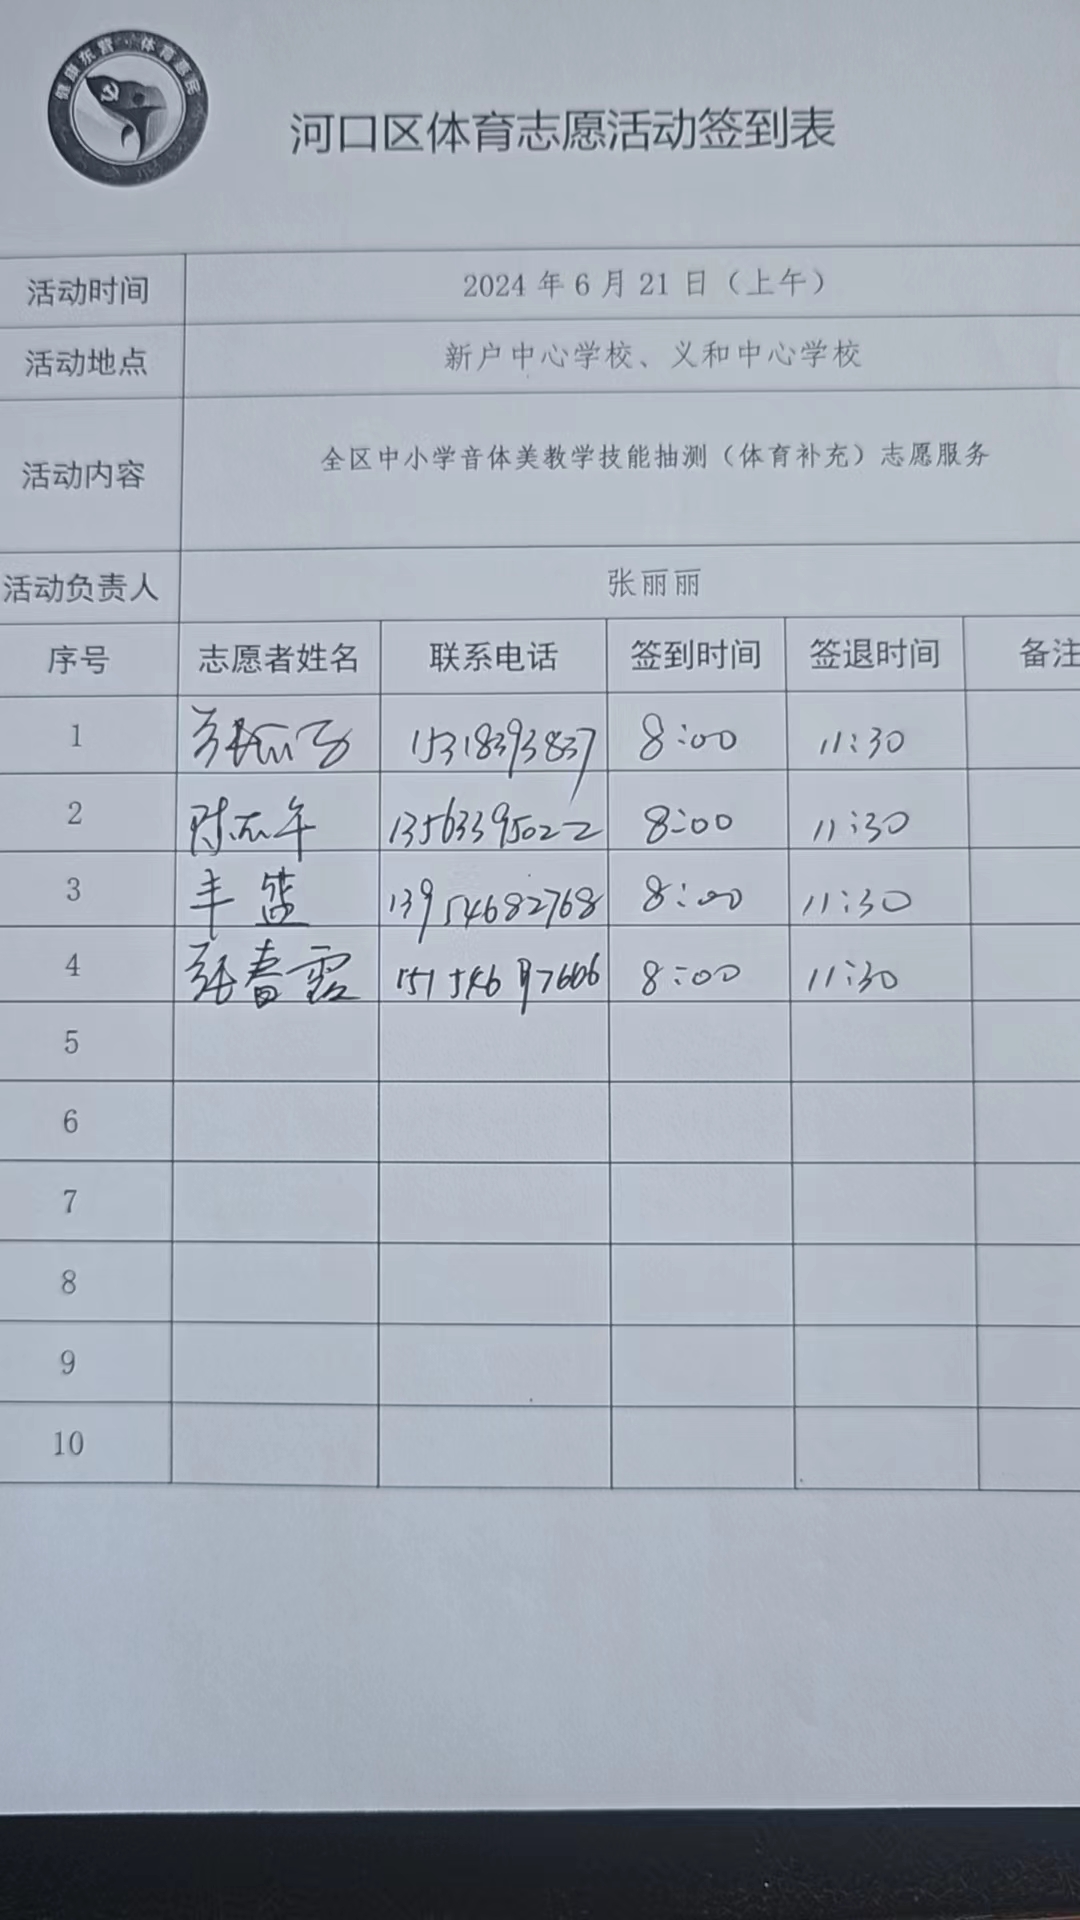 健康东营·体育惠民
河口区体育志愿活动签到表
活动时间 2024 年 6 月 21 日（上午）
活动地点 新户中心学校、义和中心学校
活动内容 全区中小学音体美教学技能抽测（体育补充）志愿服务
活动负责人 张丽丽
序号 志愿者姓名 联系电话 签到时间 签退时间 备注
1 15318393837 8:00 11:30
2 13563395022 8:00 11:30
3 丰 13954682768 8:00 11:30
4 张春霞 8:00 11:30
5
6
7
8
9
10